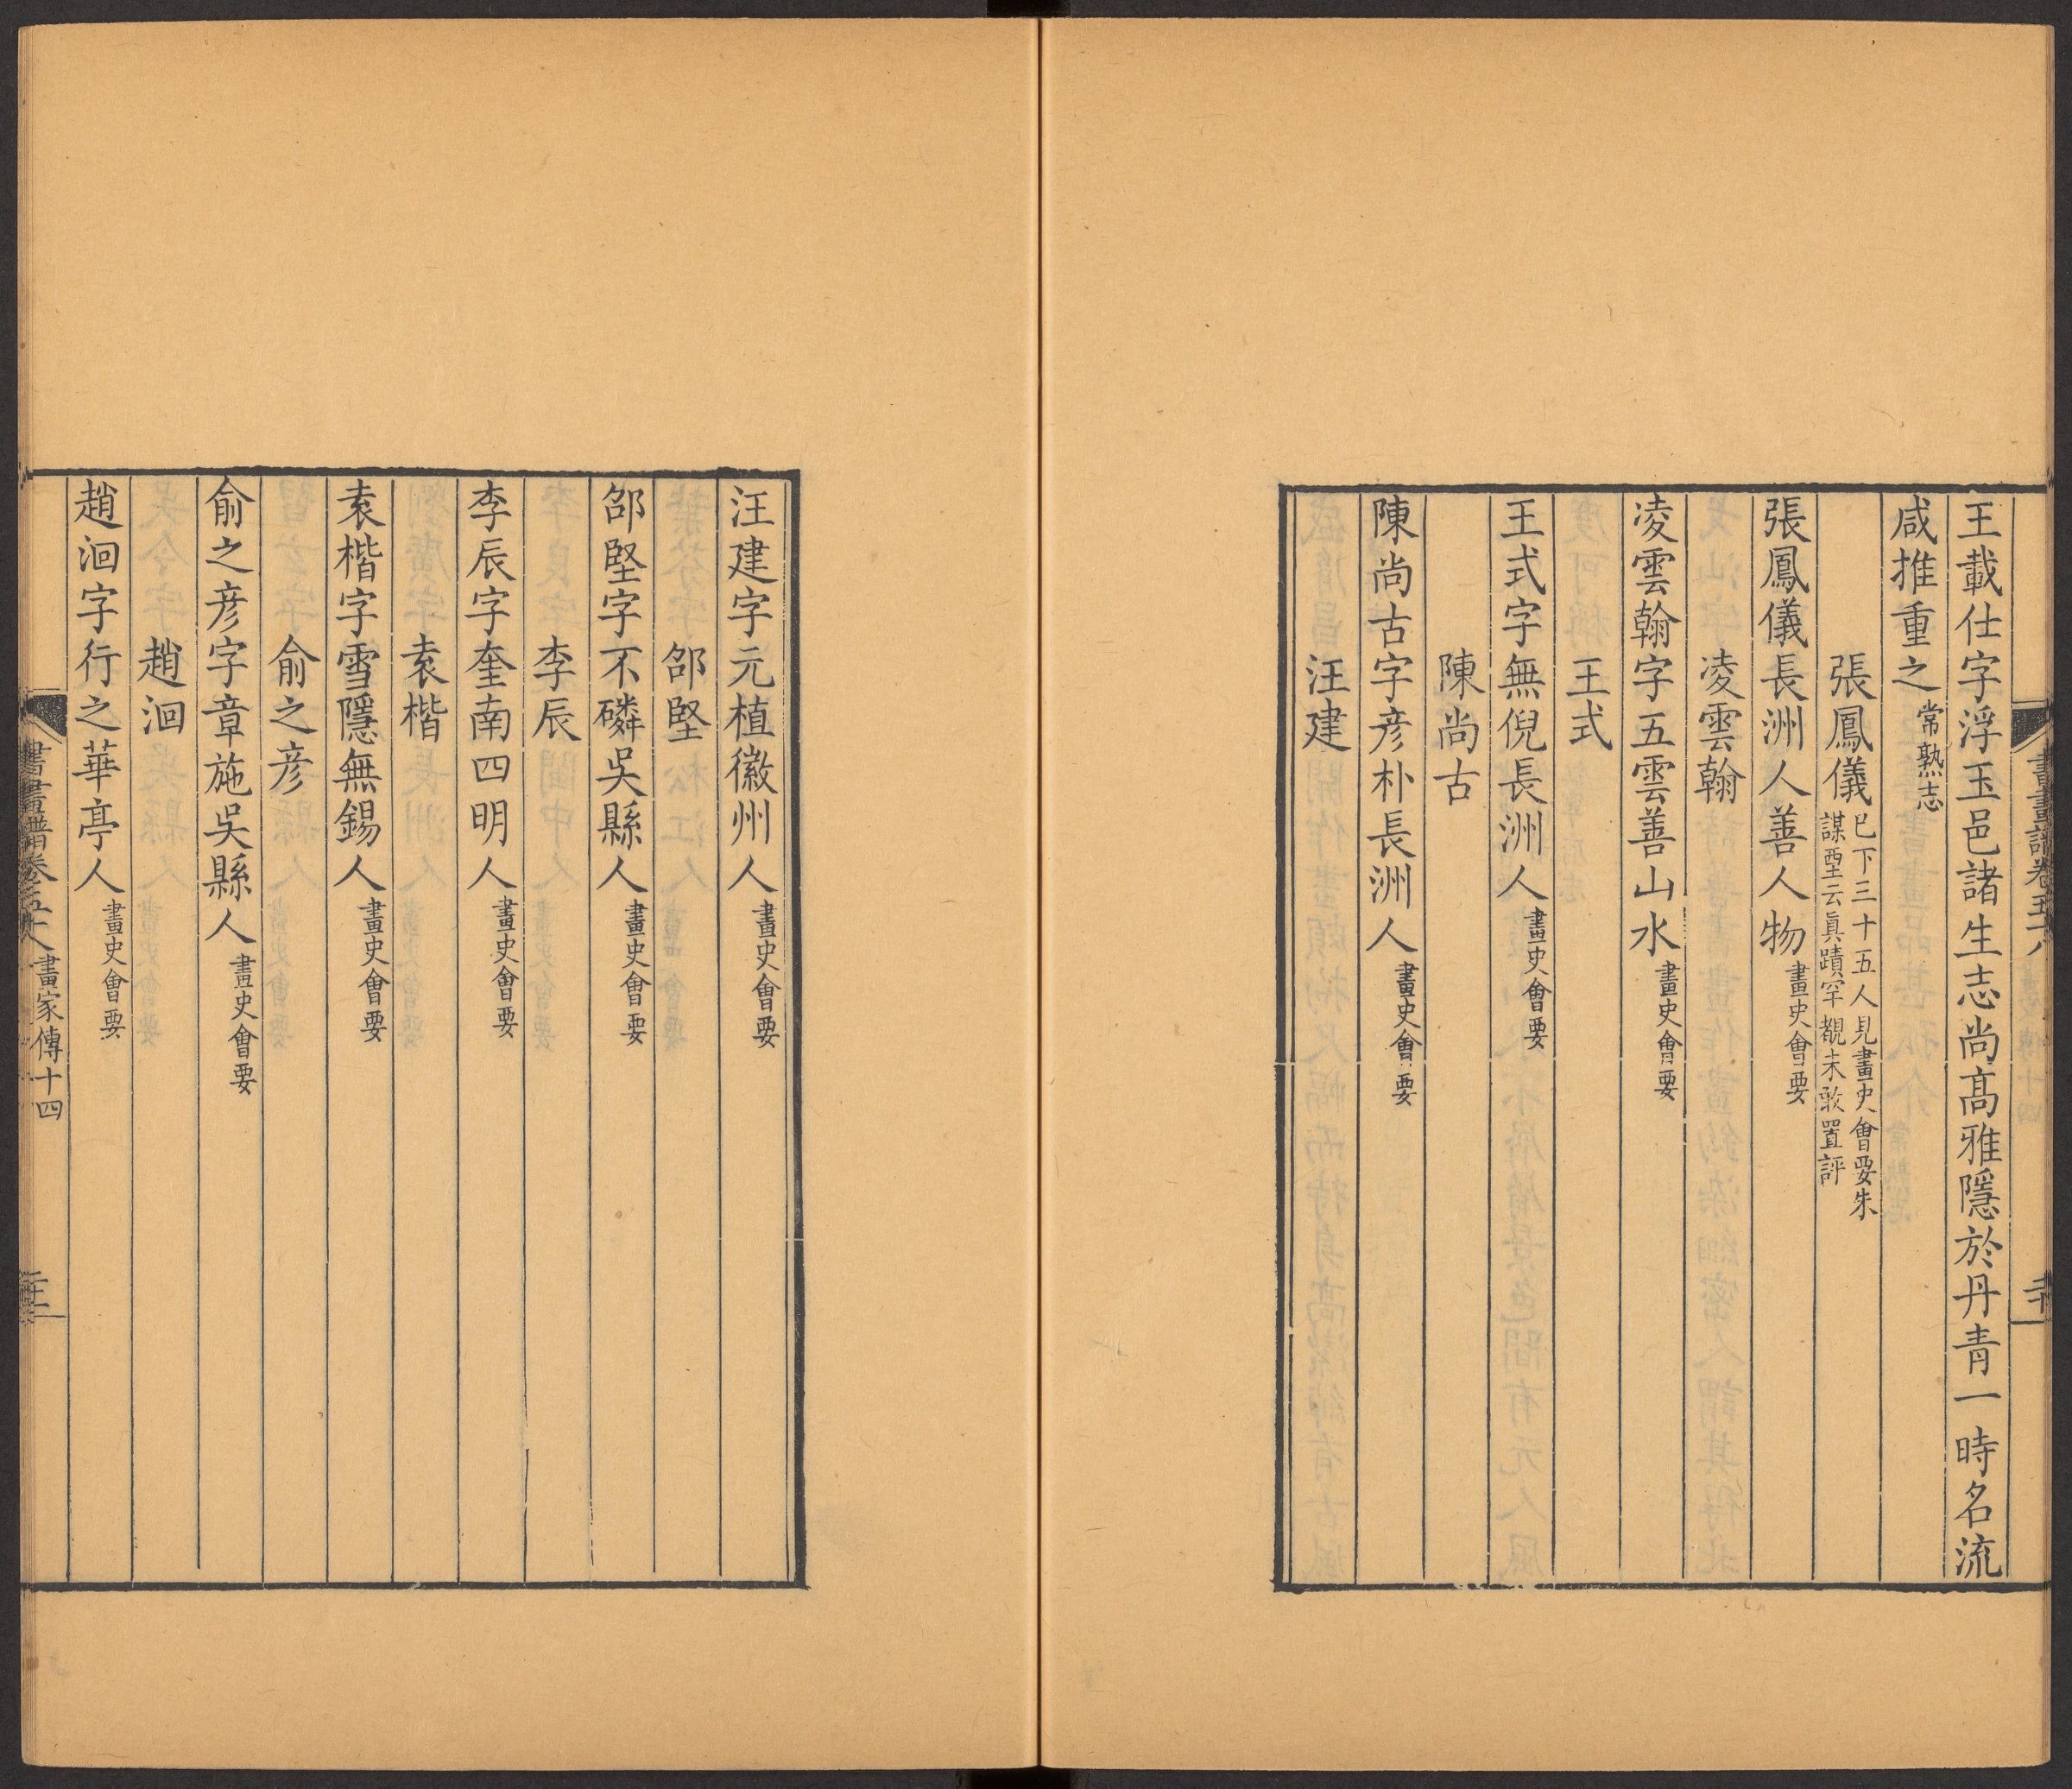 王載仕字浮玉邑諸生志尚高雅隱於丹青一時名流
咸推重之常熟志
張鳳儀已下三十五人見畫史會要朱
謀垔云眞蹟罕覩未敢置評
張鳳儀長洲人善人物畫史會要
凌雲翰
凌雲翰字五雲善山水畫史會要
王式
王式字無倪長洲人畫史會要
陳尚古
陳尚古字彥朴長洲人畫史會要
汪建
汪建字元植徽州人畫史會要
邵堅
邵堅字不磷吳縣人畫史會要
李辰
李辰字奎南四明人畫史會要
袁楷
袁楷字雪隱無錫人畫史會要
俞之彥
俞之彥字章施吳縣人畫史會要
趙洄
趙洄字行之華亭人畫史會要
書畫譜卷五十八 畫家傳十四